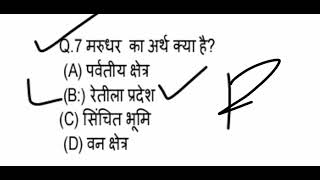 Q.7 मरुधर का अर्थ क्या है?
(A) पर्वतीय क्षेत्र
(B:) रेतीला प्रदेश
(C) सिंचित भूमि
(D) वन क्षेत्र